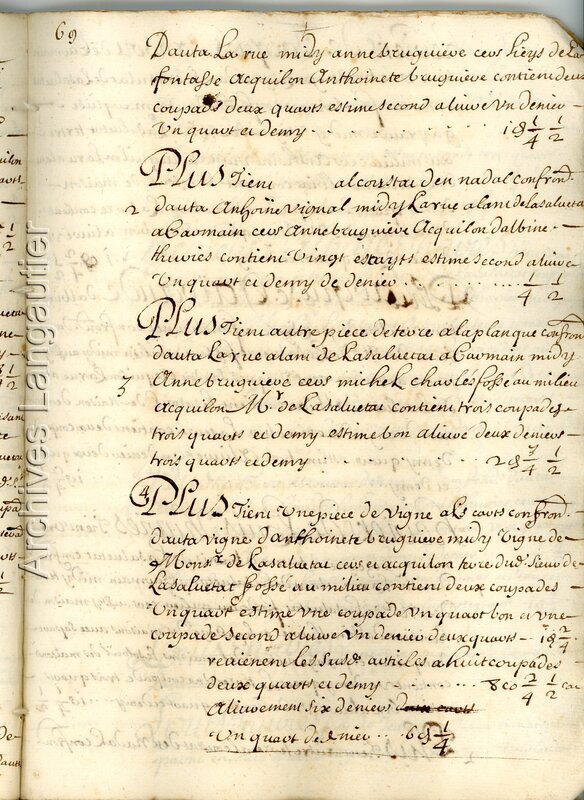 69
Dauta La rue midy anne bruguieve cevs heys de La
fontasse acquilon Anthoinete bruguieve contien deux
coupads deux quavts estime second aliuve vn deniev
vn quavt et demy · · · 1 d 1/4 1/2
PLUS Tient al coustat den nadal confrond.
2 dauta Anhoine vignal midy La rue alant de Lasaluetat
a Gavmain cevs Anne bruguieve Acquilon dalbine
thuvies contient vingt estayts estime second aliuve
vn quavt et demy de deniev · · · 1/4 1/2
PLUS Tient autre piece de tevre a la planque confrond.
dauta La rue alant de Lasaluetat a Gavmain midy
3 Anne bruguieve cevs michel chavles fossé au milieu
acquilon Mr. de Lasaluetat contient trois coupades
trois quavts et demy estime bon aliuvé deux denievs
trois quavts et demy · · · 2 d 3/4 1/2
4 PLUS Tient vne piece de vigne a Ls cavts confrond.
dauta vigne d'anthoinete bruguieve midy vigne de
Monsr. de Lasaluetat cevs et acquilon tevre dud. sieuv de
Lasaluetat fossé au milieu contient deux coupades
vn quavt estime vne coupade vn quavt bon et vne
coupade second aliuve vn deniev deux quavts - 1 d 2/4
reuienent les susd. articles a huit coupades
deux quavts et demy · · · 8 co 2/4 1/2
Aliuvement six denievs deux cavts
vn quavt de deniev · · 6 d 1/4
Archives Langautier